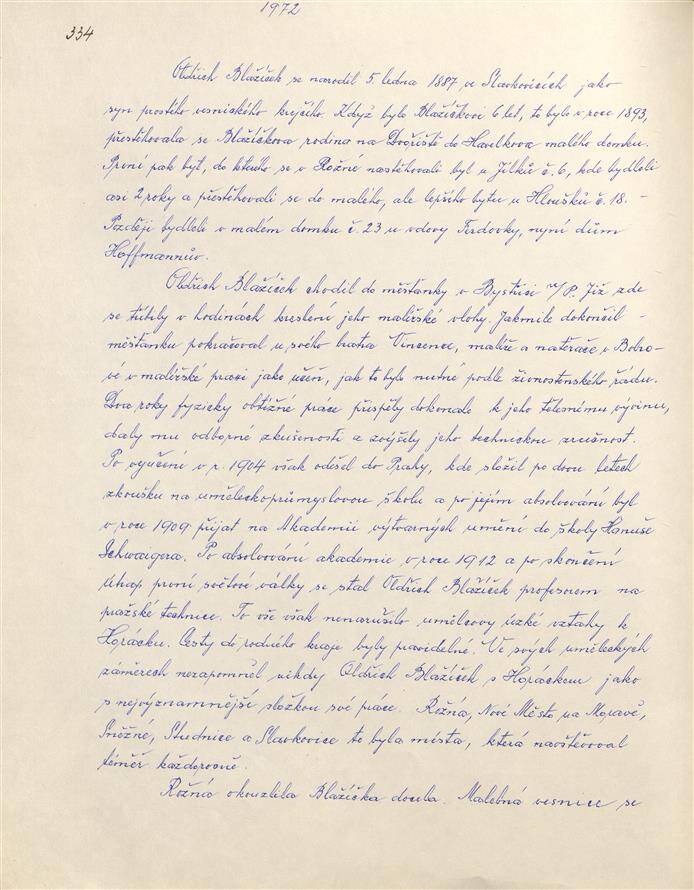 1972
334
Oldřich Blažíček se narodil 5. ledna 1887 ve Slavkovicích jako
syn prostého vesnického krejčího. Když bylo Blažíčkovi 6 let, to bylo v roce 1893,
přestěhovala se Blažíčkova rodina na Dvořiště do Havelkova malého domku.
První pak byt, do kterého se v Rožné nastěhovali byl u Jílků č. 6, kde bydleli
asi 2 roky a přestěhovali se do malého, ale lepšího bytu u Hloušků č. 18. -
Později bydleli v malém domku č. 23 u vdovy Ferdovky, nyní dům
Hoffmannův.
Oldřich Blažíček chodil do měšťanky v Bystřici n/P. Již zde
se tříbily v hodinách kreslení jeho malířské vlohy. Jakmile dokončil -
měšťanku pokračoval u svého bratra Vincence, malíře a natěrače v Bobro-
vé v malířské praxi jako učeň, jak to bylo nutné podle živnostenského řádu.
Dva roky fyzicky obtížné práce přispěly dokonale k jeho tělesnému vývinu,
daly mu odborné zkušenosti a zvýšily jeho technickou zručnost.
Po vyučení v r. 1904 však odešel do Prahy, kde složil po dvou letech
zkoušku na uměleckoprůmyslovou školu a po jejím absolvování byl
v roce 1909 přijat na Akademii výtvarných umění do školy Hanuše
Schwaigera. Po absolvování akademie v roce 1912 a po skončení
útrap první světové války se stal Oldřich Blažíček profesorem na
pražské technice. To vše však nenarušilo umělcovy úzké vztahy k
Horácku. Cesty do rodného kraje byly pravidelné. Ve svých uměleckých
záměrech nezapomněl nikdy Oldřich Blažíček s Horáckem jako
s nejvýznamnější složkou své práce. Rožná, Nové Město na Moravě,
Sněžné, Studnice a Slavkovice to byla místa, která navštěvoval
téměř každoročně.
Rožná okouzlila Blažíčka docela. Malebná vesnice se